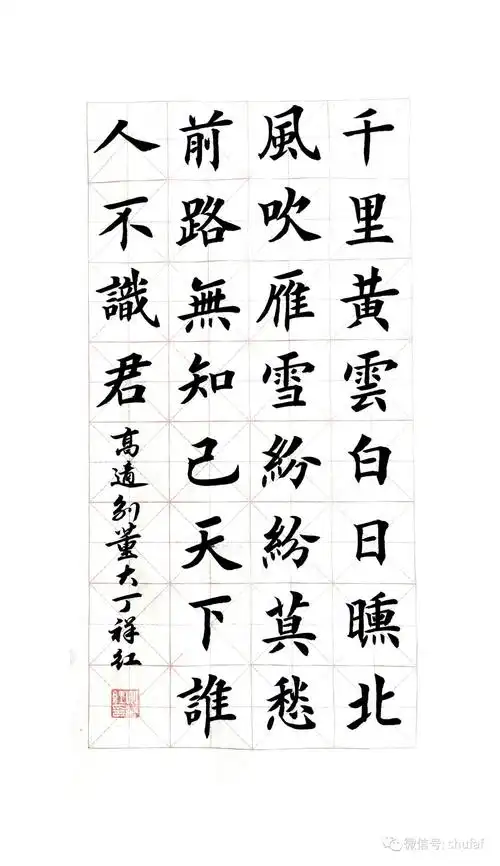 千里黃雲白日曛北
風吹雁雪紛紛莫愁
前路無知己天下誰
人不識君
高適別董大丁祥红
微信号: shufaf